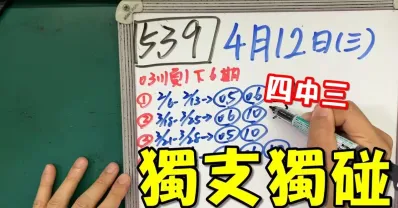 539
4月12日(三)
03川頁1下6期
四中三
① 2/6-2/13→05 06
② 3/18-3/25→06 10
③ 3/21-3/28→05 10
獨支獨碰